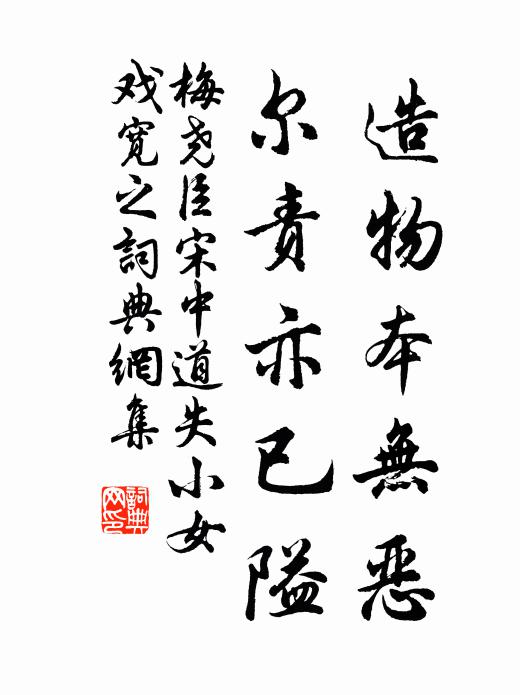 造物本無惡
尔責亦已隘
梅尧臣宋中道失小女
戏寬之詞典網集
詞典
网印